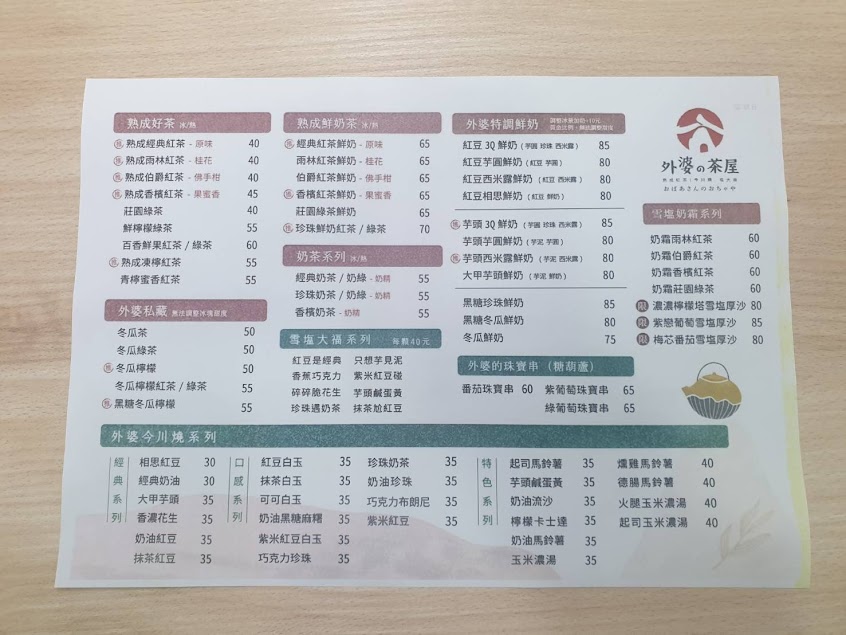 熟成好茶 冰/熱
熟成經典紅茶 - 原味 40
熟成雨林紅茶 - 桂花 40
熟成伯爵紅茶 - 佛手柑 40
熟成香檳紅茶 - 果蜜香 45
莊園綠茶 40
鮮檸檬綠茶 55
百香鮮果紅茶 / 綠茶 60
熟成凍檸紅茶 55
青檸蜜香紅茶 55
外婆私藏 無法調整冰塊甜度
冬瓜茶 50
冬瓜綠茶 50
冬瓜檸檬 50
冬瓜檸檬紅茶 / 綠茶 55
黑糖冬瓜檸檬 55
熟成鮮奶茶 冰/熱
經典紅茶鮮奶 - 原味 65
雨林紅茶鮮奶 - 桂花 65
伯爵紅茶鮮奶 - 佛手柑 65
香檳紅茶鮮奶 - 果蜜香 65
莊園綠茶鮮奶 65
珍珠鮮奶紅茶 / 綠茶 70
奶茶系列 冰/熱
經典奶茶 / 奶綠 - 奶精 55
珍珠奶茶 / 奶綠 - 奶精 55
香檳奶茶 - 奶精 55
雪塩大福系列 每顆40元
紅豆是經典 只想芋見泥
香蕉巧克力 紫米紅豆碰
碎碎脆花生 芋頭鹹蛋黃
珍珠遇奶茶 抹茶尬紅豆
外婆特調鮮奶
紅豆 3Q 鮮奶 ( 芋圓 珍珠 西米露 ) 85
紅豆芋圓鮮奶 ( 紅豆 芋圓 ) 80
紅豆西米露鮮奶 ( 紅豆 西米露 ) 80
紅豆相思鮮奶 ( 紅豆 鮮奶 ) 80
芋頭 3Q 鮮奶 ( 芋圓 珍珠 西米露 ) 85
芋頭芋圓鮮奶 ( 芋泥 芋圓 ) 80
芋頭西米露鮮奶 ( 芋泥 西米露 ) 80
大甲芋頭鮮奶 ( 芋泥 鮮奶 ) 80
黑糖珍珠鮮奶 85
黑糖冬瓜鮮奶 80
冬瓜鮮奶 75
外婆的珠寶串 (糖葫蘆)
番茄珠寶串 60 紫葡萄珠寶串 65
綠葡萄珠寶串 65
外婆の茶屋
おばあさんのおちゃや
雪塩奶霜系列
奶霜雨林紅茶 60
奶霜伯爵紅茶 60
奶霜香檳紅茶 60
奶霜莊園綠茶 60
限 濃濃檸檬塔雪塩厚沙 80
限 紫戀葡萄雪塩厚沙 85
限 梅芯番茄雪塩厚沙 80
外婆今川燒系列
經典系列
相思紅豆 30
經典奶油 30
大甲芋頭 35
香濃花生 35
奶油紅豆 35
抹茶紅豆 35
口感系列
紅豆白玉 35
抹茶白玉 35
可可白玉 35
奶油黑糖麻糬 35
紫米紅豆白玉 35
巧克力珍珠 35
珍珠奶茶 35
奶油珍珠 35
巧克力布朗尼 35
紫米紅豆 35
特色系列
起司馬鈴薯 35
芋頭鹹蛋黃 35
奶油流沙 35
檸檬卡士達 35
奶油馬鈴薯 35
玉米濃湯 35
燻雞馬鈴薯 40
德腸馬鈴薯 40
火腿玉米濃湯 40
起司玉米濃湯 40